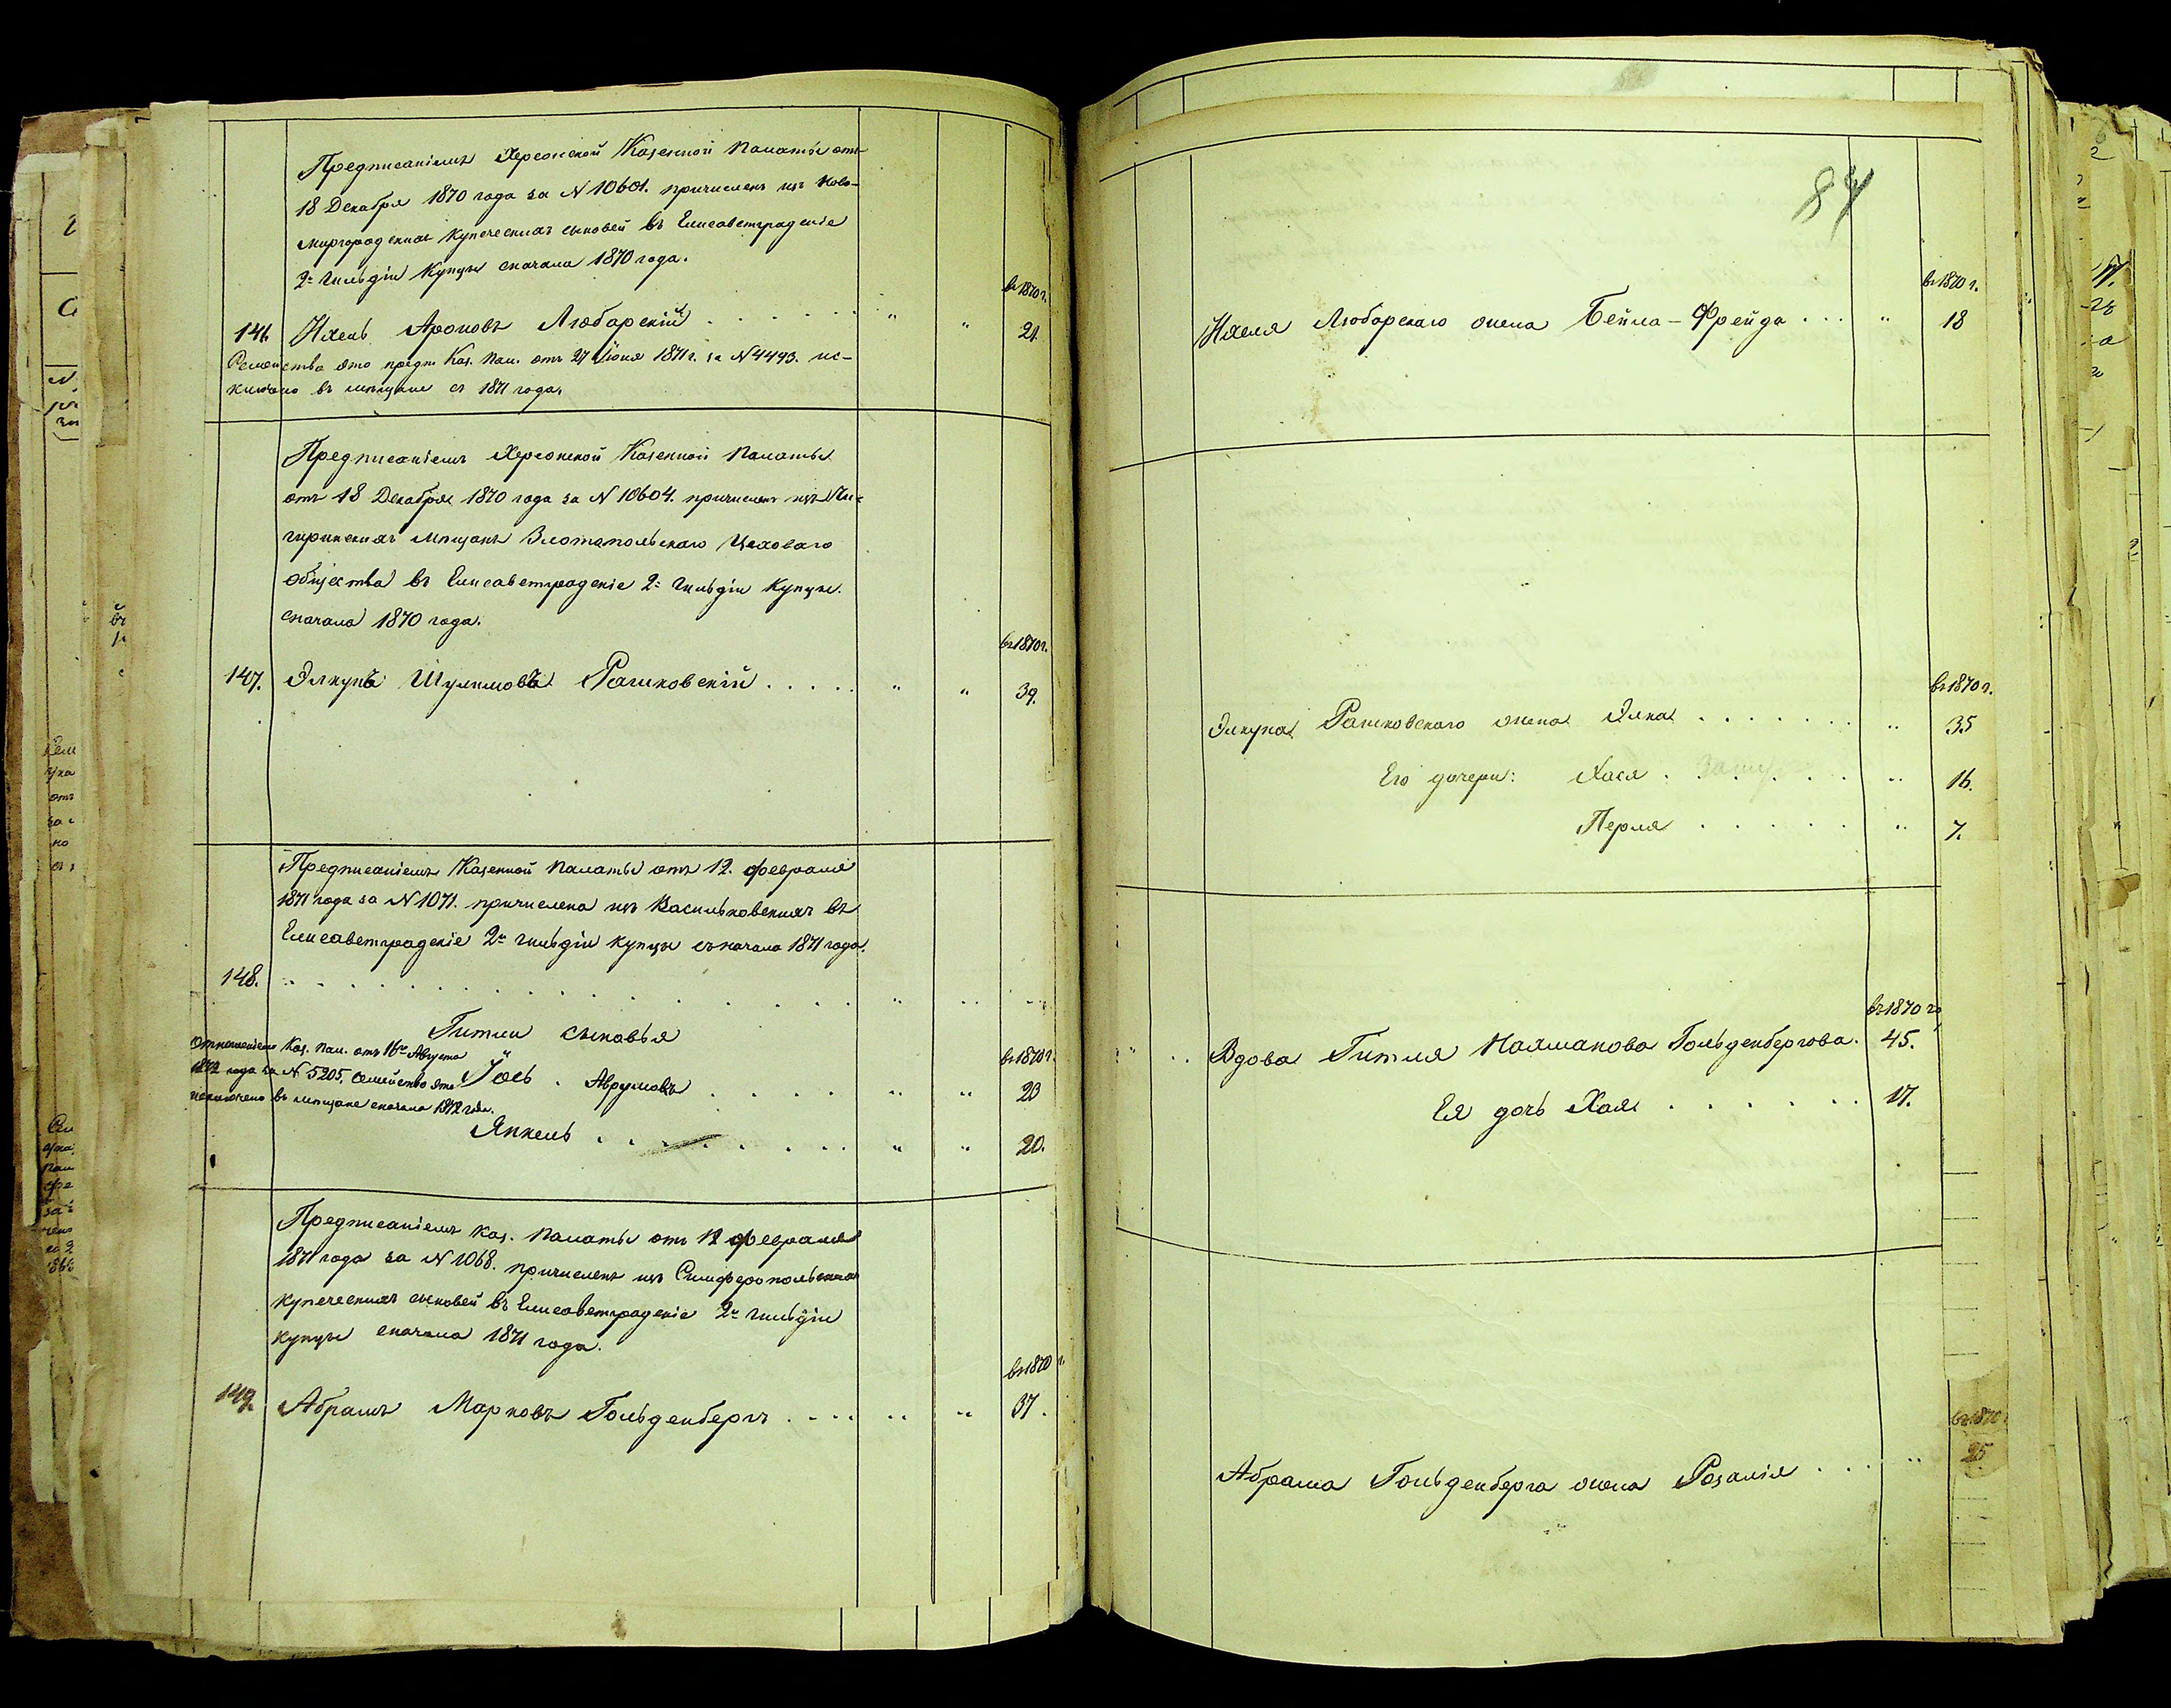 Предписаніемъ Херсонской Казенной Палаты отъ
18 Декабря 1870 года за N 10601. причисленъ изъ Ново-
миргородскихъ купеческихъ сыновей въ Елисаветградскіе
2й гильдіи купцы сначала 1870 года.
въ 1870 г.
146. Ихель Ароновъ Любарскій . . . . . . " " 21.
Семейство это предп. Каз. Пал. отъ 27 Іюня 1871 г. за N 4443. ис-
ключено въ мещане съ 1871 года.
Предписаніемъ Херсонской Казенной Палаты
отъ 18 Декабря 1870 года за N 10604. причисленъ изъ Чи-
гиринскихъ мещанъ Златопольскаго Цеховаго
общества въ Елисаветградскіе 2й гильдіи купцы
сначала 1870 года.
въ 1870 г.
147. Элкунъ Шулимовъ Рашковскій . . . . . " " 39.
Предписаніемъ Казенной Палаты отъ 12. февраля
1871 года за N 1071. причислена изъ Васильковскихъ въ
Елисаветградскіе 2й гильдіи купцы съ начала 1871 года.
148.
Гитли сыновья
въ 1870 г.
Отношеніемъ Каз. Пал. отъ 16го Августа
1872 года за N 5205, семейство это
исключено въ мещане сначала 1872 года.
Іось . Аврумовъ . . . . . " " 23
Янкель . . . . . . . . " " 20.
Предписаніемъ Каз. Палаты отъ 12 февраля
1871 года за N 1068. причисленъ изъ Симферопольскихъ
купеческихъ сыновей въ Елисаветградскіе 2й гильдіи
купцы сначала 1871 года.
въ 1870 г.
149. Абрамъ Марковъ Гольденбергъ . . . . " " 37.
84
въ 1870 г.
Ихеля Любарскаго жена Бейла-Фрейда . . . " 18
въ 1870 г.
Элкуна Рашковскаго жена Элка . . . . . . . " 35
Его дочери: Хася . . . . . . " 16.
Перля . . . . . " 7.
въ 1870 г.
Вдова Гитля Нахманова Гольденбергова. 45.
Ея дочь Хая . . . . . . . 17.
въ 1870
Абрама Гольденберга жена Розалія . . . " 25